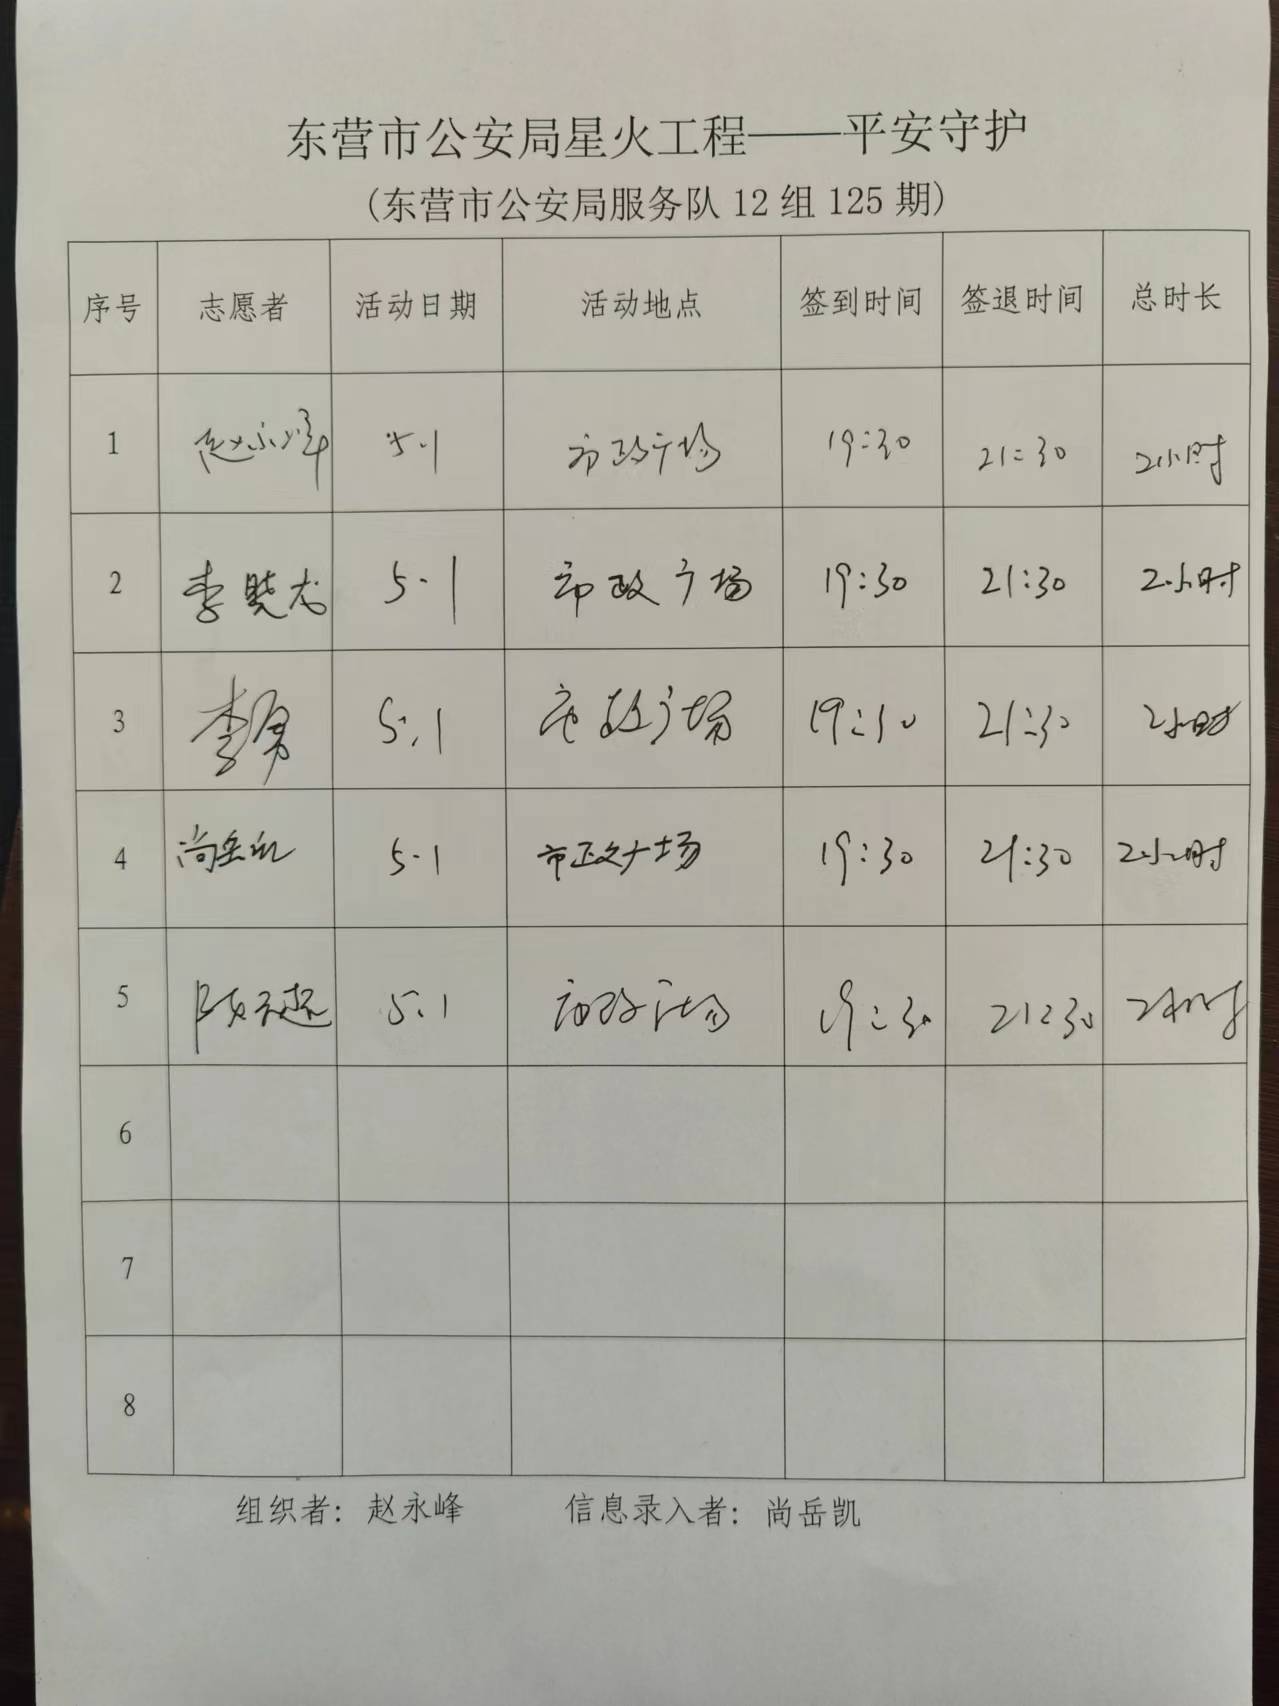 东营市公安局星火工程——平安守护
(东营市公安局服务队 12 组 125 期)
序号 志愿者 活动日期 活动地点 签到时间 签退时间 总时长
1 赵永峰 5·1 市政广场 19:30 21:30 2小时
2 李晓龙 5·1 市政广场 19:30 21:30 2小时
3 李勇 5.1 市政广场 19:30 21:30 2小时
4 尚岳凯 5·1 市政广场 19:30 21:30 2小时
5 5.1 市政广场 19:30 21:30 2小时
6
7
8
组织者：赵永峰 信息录入者：尚岳凯